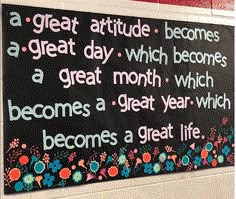 a·great attitude· becomes
a·great day· which becomes
a great month· which
becomes a·great year·which
becomes a great life.